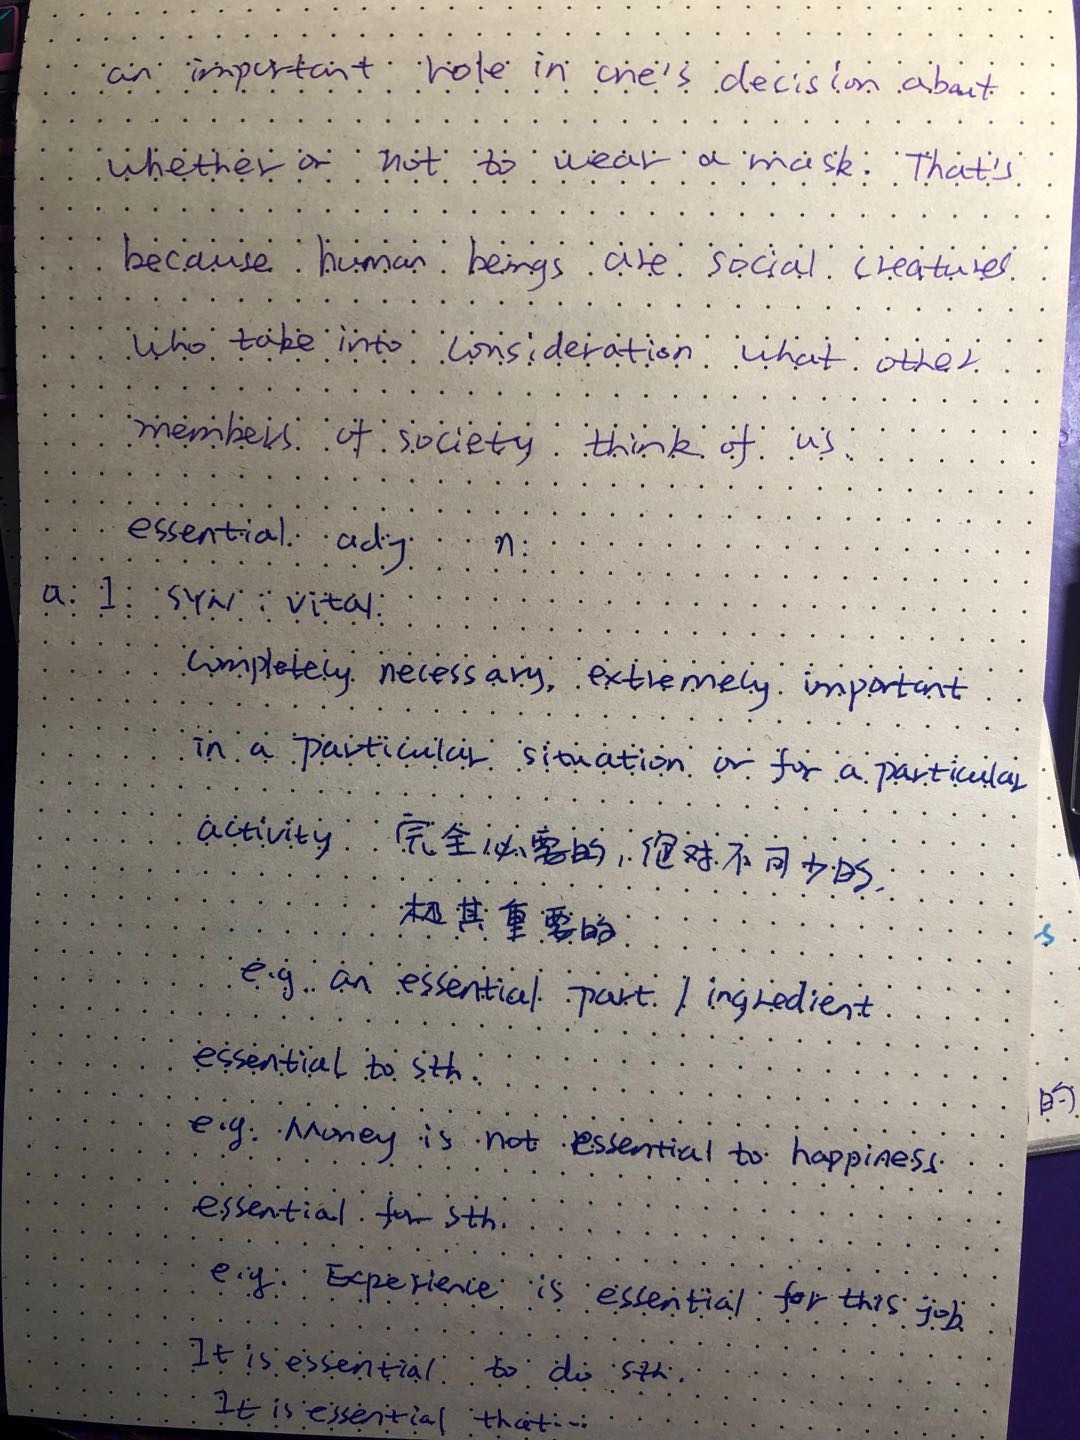 an important role in one's decision about
whether or not to wear a mask. That's
because human beings are social creatures
who take into consideration what other
members of society think of us.
essential. adj n:
a: 1: SYN: vital:
completely necessary, extremely important
in a particular situation or for a particular
activity 完全必要的,绝对不可少的,
极其重要的
e.g. an essential part / ingredient
essential to sth.
e.g. Money is not essential to happiness
essential for sth.
e.g. Experience is essential for this job
It is essential to do sth.
It is essential that...
s
的)